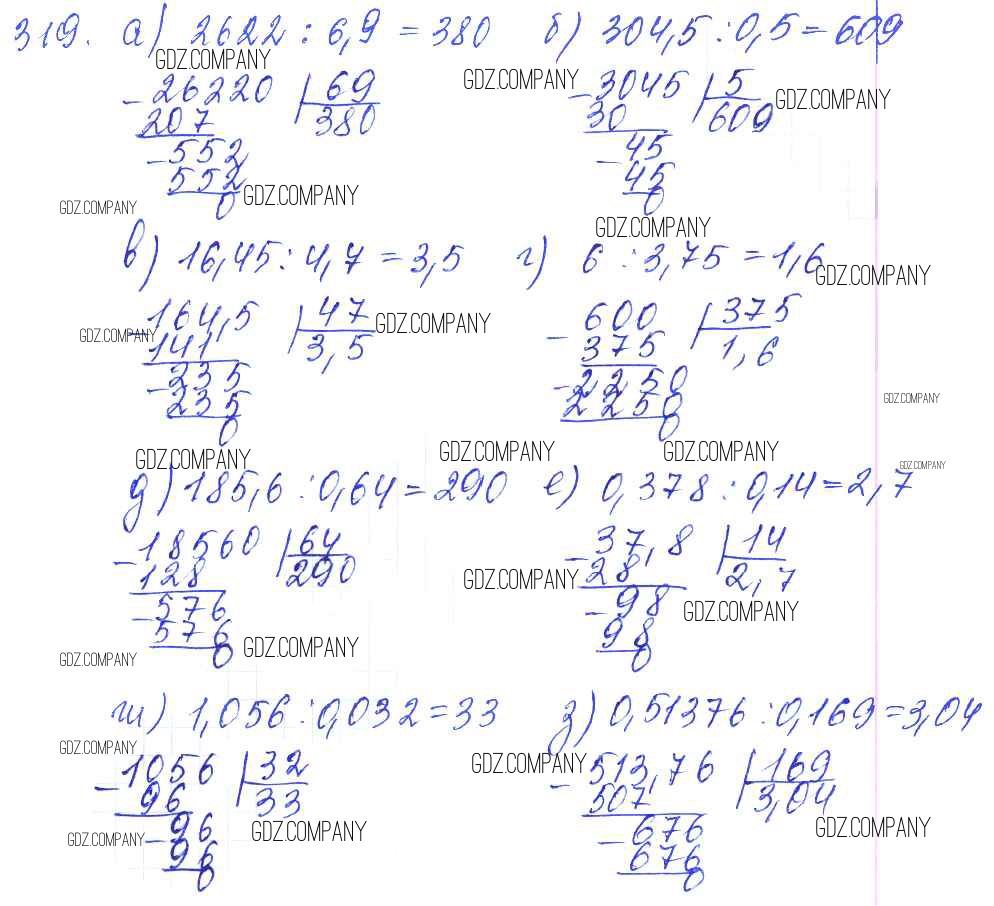 319. а) 2622 : 6,9 = 380 б) 304,5 : 0,5 = 609
GDZ.COMPANY
26220 | 69 GDZ.COMPANY 3045 | 5 GDZ.COMPANY
207 380 30 609
- 552 - 45
552 45
0 GDZ.COMPANY 0
GDZ.COMPANY GDZ.COMPANY
в) 16,45 : 4,7 = 3,5 г) 6 : 3,75 = 1,6
GDZ.COMPANY
- 164,5 | 47 GDZ.COMPANY - 600 | 375
GDZ.COMPANY
141 3,5 375 1,6
- 235 - 2250
235 2250
0 0
GDZ.COMPANY
GDZ.COMPANY GDZ.COMPANY GDZ.COMPANY GDZ.COMPANY
д) 185,6 : 0,64 = 290 е) 0,378 : 0,14 = 2,7
- 18560 | 64 - 37,8 | 14
128 290 GDZ.COMPANY 28 2,7
- 576 - 98 GDZ.COMPANY
576 98
0 GDZ.COMPANY 0
GDZ.COMPANY
ж) 1,056 : 0,032 = 33 з) 0,51376 : 0,169 = 3,04
GDZ.COMPANY GDZ.COMPANY
- 1056 | 32 - 513,76 | 169
96 33 507 3,04
- 96 - 676
GDZ.COMPANY GDZ.COMPANY GDZ.COMPANY
96 676
0 0